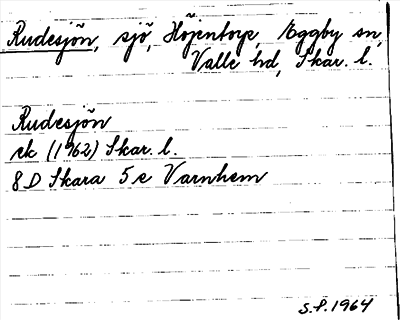 Rudesjön, sjö, Höjentorp, Eggby sn,
Valle hd, Skar. l.
Rudesjön
ek (1962) Skar. l.
8 D Skara 5 e Varnhem
S.P. 1964